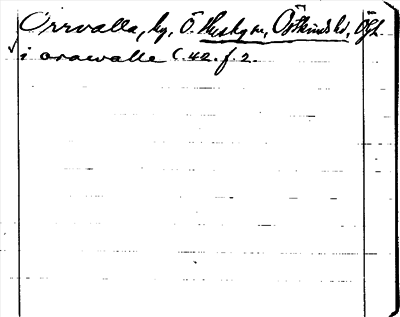 Orrvalla, by, Ö. Husby sn, Östkinds hd, Ögl.
i orawalle C. 42. f. 2.